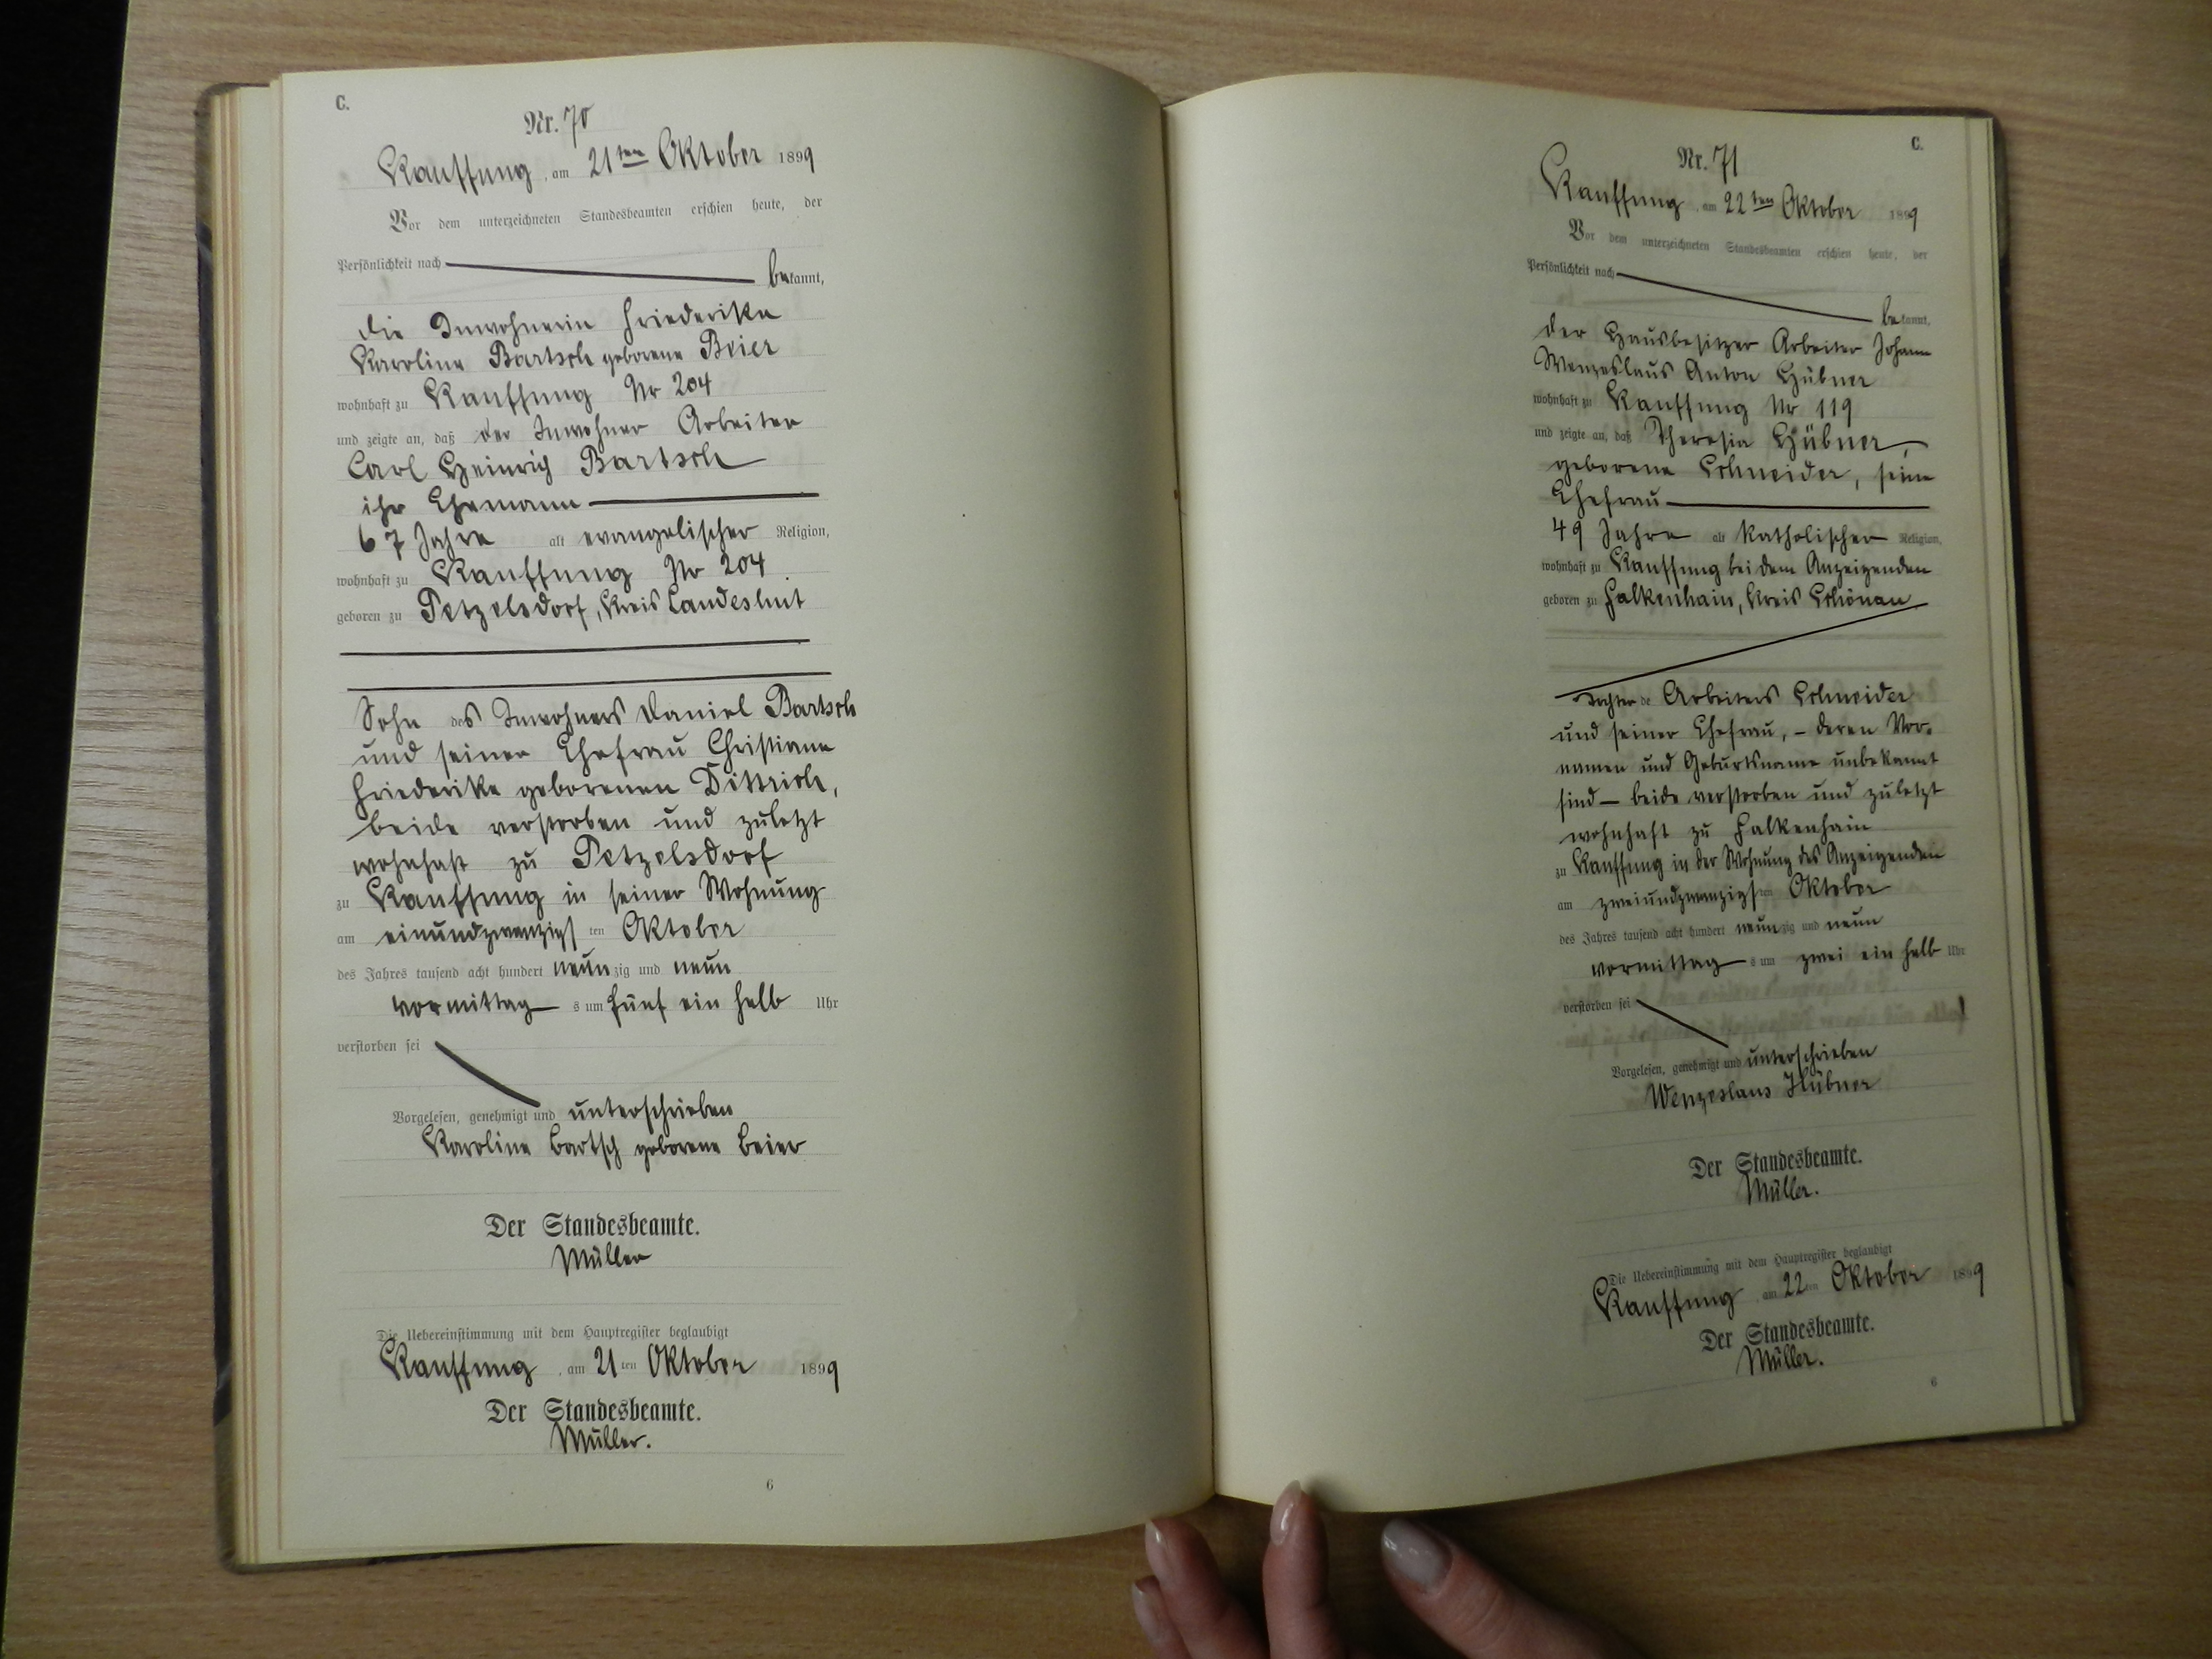 C.
Nr. 70
Kauffung, am 21ten Oktober 1899
Vor dem unterzeichneten Standesbeamten erschien heute, der
Persönlichkeit nach
bekannt,
die Inwohnerin Friederike
Karoline Bartsch geborene Beier
wohnhaft zu Kauffung Nr 204
und zeigte an, daß der Inwohner Arbeiter
Carl Heinrich Bartsch
ihr Ehemann
67 Jahre alt evangelischer Religion,
wohnhaft zu Kauffung Nr 204
geboren zu Petzelsdorf, Kreis Landeshut
Sohn des Inwohners Daniel Bartsch
und seiner Ehefrau Christiane
Friederike geborenen Dittrich,
beide verstorben und zuletzt
wohnhaft zu Petzelsdorf
zu Kauffung in seiner Wohnung
am einundzwanzigsten Oktober
des Jahres tausend acht hundert neunzig und neun
vormittags um fünf ein halb Uhr
verstorben sei
Vorgelesen, genehmigt und unterschrieben
Karoline Bartsch geborene Beier
Der Standesbeamte.
Müller
Die Uebereinstimmung mit dem Hauptregister beglaubigt
Kauffung, am 21ten Oktober 1899
Der Standesbeamte.
Müller.
6
C.
Nr. 71
Kauffung, am 22ten Oktober 1899
Vor dem unterzeichneten Standesbeamten erschien heute, der
Persönlichkeit nach
bekannt,
der Hausbesitzer Arbeiter Johann
Wenzeslaus Anton Hübner
wohnhaft zu Kauffung Nr 119
und zeigte an, daß Theresia Hübner,
geborene Schneider, seine
Ehefrau
49 Jahre alt katholischer Religion,
wohnhaft zu Kauffung bei dem Anzeigenden
geboren zu Falkenhain, Kreis Schönau
Tochter de Arbeiters Schneider
und seiner Ehefrau, - deren Vor-
namen und Geburtsname unbekannt
sind - beide verstorben und zuletzt
wohnhaft zu Falkenhain
zu Kauffung in der Wohnung des Anzeigenden
am zweiundzwanzigsten Oktober
des Jahres tausend acht hundert neunzig und neun
vormittags um zwei ein halb Uhr
verstorben sei
Vorgelesen, genehmigt und unterschrieben
Wenzeslaus Hübner
Der Standesbeamte.
Müller.
Die Uebereinstimmung mit dem Hauptregister beglaubigt
Kauffung, am 22ten Oktober 1899
Der Standesbeamte.
Müller.
6